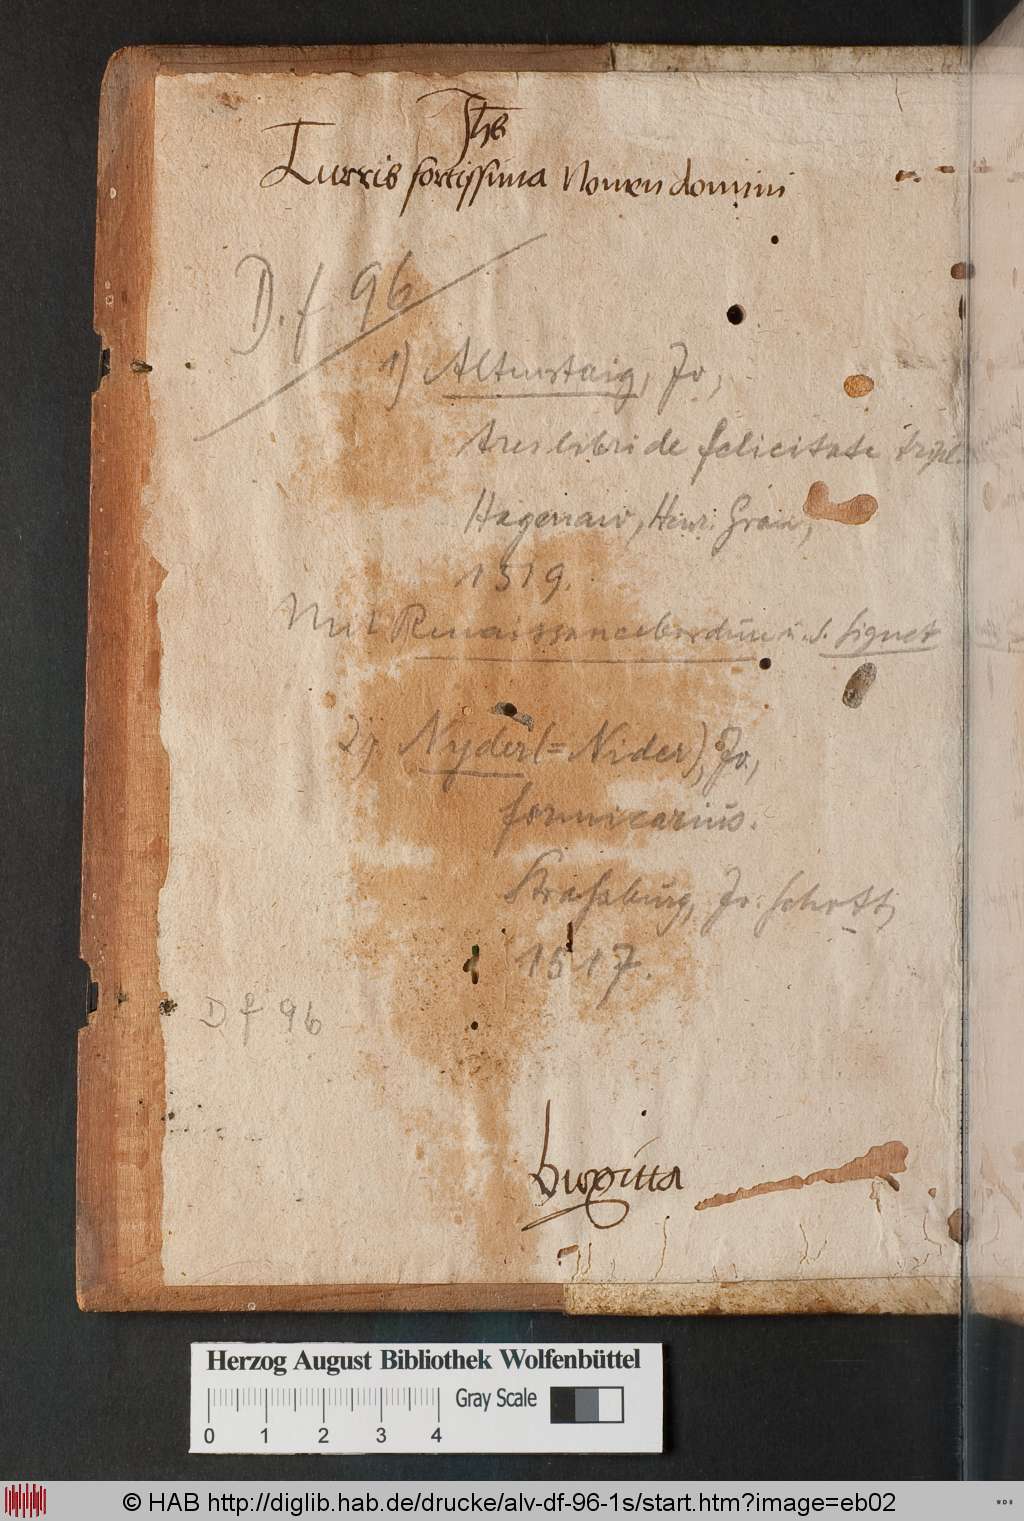 Jhs
Turris fortissima Nomen domini
D. f 96
1) Altenstaig, Jo,
tres libri de felicitate tripl.
Hagenaw, Henr. Gran,
1519.
Mit Renaissancebordüre u. s. Signet
2) Nyder (= Nider), Jo,
formicarius.
Straßburg, Jo. Schott,
1517.
D f 96
birgitta
Herzog August Bibliothek Wolfenbüttel
Gray Scale
0 1 2 3 4
© HAB http://diglib.hab.de/drucke/alv-df-96-1s/start.htm?image=eb02